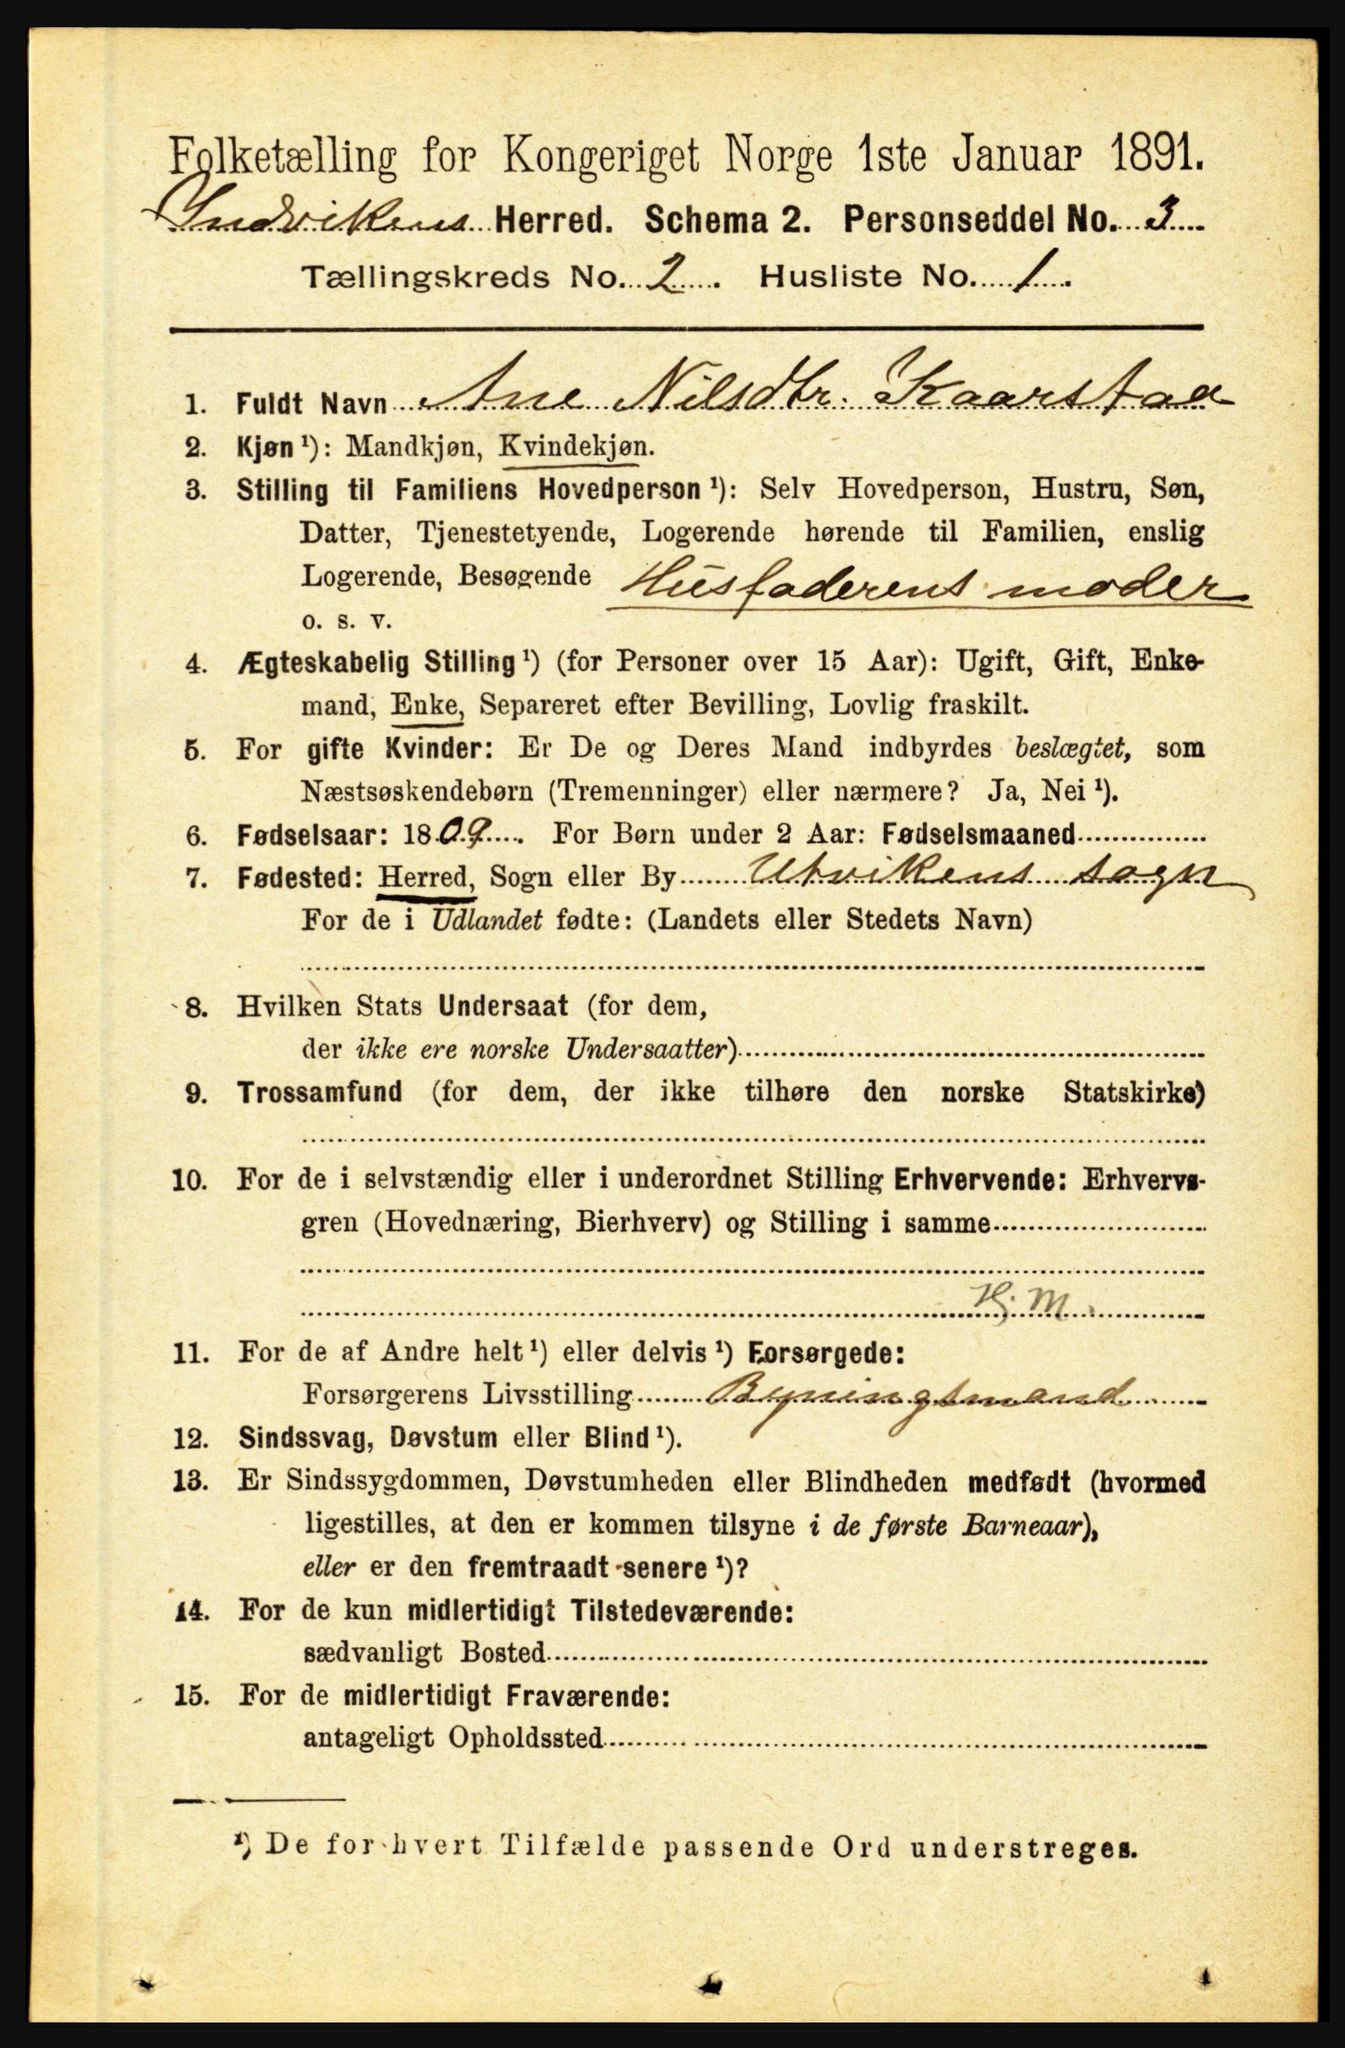 Folketælling for Kongeriget Norge 1ste Januar 1891.
Indvikens Herred. Schema 2. Personseddel No. 3
Tællingskreds No. 2. Husliste No. 1.
1. Fuldt Navn Ane Nilsdtr. Kaarstad
2. Kjøn ¹): Mandkjøn, Kvindekjøn.
3. Stilling til Familiens Hovedperson ¹): Selv Hovedperson, Hustru, Søn,
Datter, Tjenestetyende, Logerende hørende til Familien, enslig
Logerende, Besøgende Husfaderens moder
o. s. v.
4. Ægteskabelig Stilling ¹) (for Personer over 15 Aar): Ugift, Gift, Enke-
mand, Enke, Separeret efter Bevilling, Lovlig fraskilt.
5. For gifte Kvinder: Er De og Deres Mand indbyrdes beslægtet, som
Næstsøskendebørn (Tremenninger) eller nærmere? Ja, Nei ¹).
6. Fødselsaar: 1809. For Børn under 2 Aar: Fødselsmaaned
7. Fødested: Herred, Sogn eller By Utvikens sogn
For de i Udlandet fødte: (Landets eller Stedets Navn)
8. Hvilken Stats Undersaat (for dem,
der ikke ere norske Undersaatter)
9. Trossamfund (for dem, der ikke tilhøre den norske Statskirke)
10. For de i selvstændig eller i underordnet Stilling Erhvervende: Erhvervs-
gren (Hovednæring, Bierhverv) og Stilling i samme
Hj. M.
11. For de af Andre helt ¹) eller delvis ¹) Forsørgede:
Forsørgerens Livsstilling Byningsmand
12. Sindssvag, Døvstum eller Blind ¹).
13. Er Sindssygdommen, Døvstumheden eller Blindheden medfødt (hvormed
ligestilles, at den er kommen tilsyne i de første Barneaar),
eller er den fremtraadt senere ¹)?
14. For de kun midlertidigt Tilstedeværende:
sædvanligt Bosted
15. For de midlertidigt Fraværende:
antageligt Opholdssted
¹) De for hvert Tilfælde passende Ord understreges.